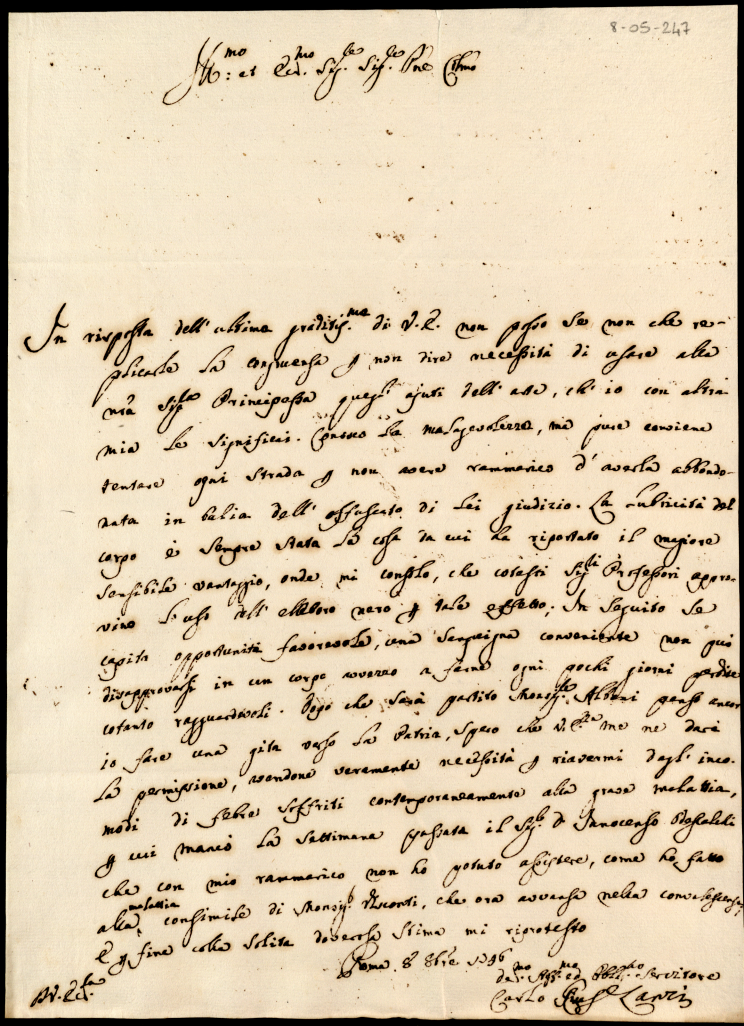 8-05-247
Ill.mo: et Ecc.mo Sig.re Sig.re Pne Col.mo
In risposta dell'ultima graditiss.ma di V.E. non posso se non che re-
plicarle la congruenza p non dire necessità di usare alla
nra Sig.ra Principessa quegl'ajuti dell'arte, ch'io con altra
mia le significai. Conosco la malagevolezza, ma pure conviene
tentare ogni strada p non avere rammarico d'averla abbando-
nata in balìa dell'offuscato di lei giudizio. La lubricità del
corpo è sempre stata la cosa da cui ha riportato il magiore
sensibile vantaggio, onde mi consolo, che cotesti Sig.ri Professori appro-
vino l'uso dell'elleboro nero p tale effetto; In seguito se
capita opportunità favorevole, una sanguigna conveniente non può
disapprovarsi in un corpo avvezzo a farne ogni pochi giorni perdite
cotanto ragguardevoli. Dopo che sarà partito Monsig.re Albani penso ancor
io fare una gita verso la Patria, spero che V. Ecc.za me ne darà
la permissione, avendone veramente necessità p riavermi dagl'inco-
modi di febre sofferti contemporaneamente alla grave malattia,
p cui mancò la settimana passata il Sig.re D Innocenzo
che con mio rammarico non ho potuto assistere, come ho fatto
alla malattia consimile di Monsig.re Visconti, che ora avvanza nella convalescenza,
E p fine colla solita doverosa stima mi riprotesto
Roma 8 8bre
D. V. Ecc.za
dev.mo Aff.mo ed Obbl.mo Servitore
Carlo